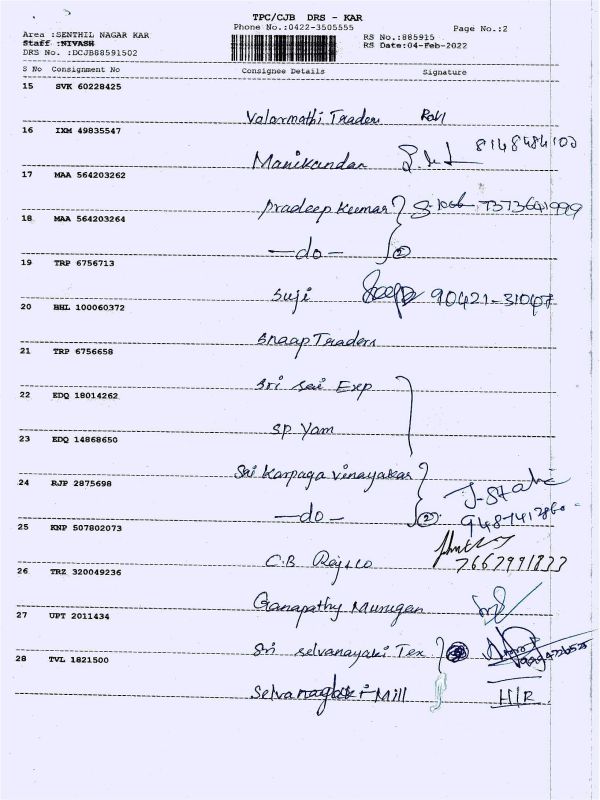 TPC/CJB DRS - KAR
Phone No.:0422-3505555
Page No.:2
Area :SENTHIL NAGAR KAR
RS No.:885915
Staff :NIVASH
RS Date:04-Feb-2022
DRS No. :DCJB88591502
S No Consignment No Consignee Details Signature
15 SVK 60228425
Valarmathi Traders
16 IXM 49835547
Manikandan 8148484102
17 MAA 564203262
Pradeep Kumar 7373641999
18 MAA 564203264
-do- 2
19 TRP 6756713
Suji 90421-31047
20 BHL 100060372
Snaap Traders
21 TRP 6756658
Sri Sai Exp
22 EDQ 18014262
SP Yarn
23 EDQ 14868650
Sai Karpaga Vinayakar
24 RJP 2875698
-do- 2
25 KNP 507802073
C.B Raj & Co 7667991833
26 TRZ 320049236
Ganapathy Murugan
27 UPT 2011434
Sri Selvanayaki Tex
28 TVL 1821500
Selvanayaki Mill H/R